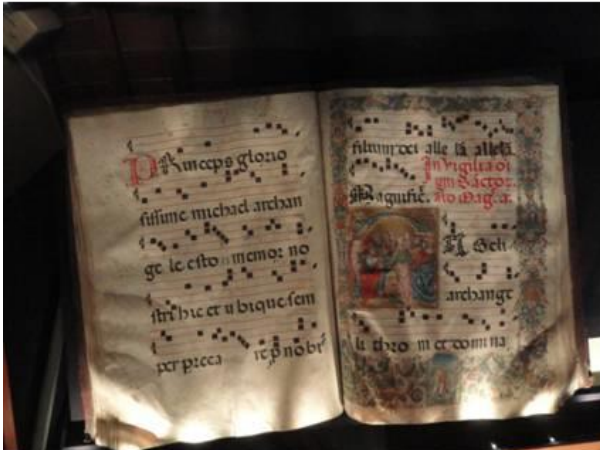 Princeps glorio
sissime michael archan
ge lc esto memor no
stri hic et ubique sem
per preca re p nobis
filium dei alle la allela
In vigilia oi
um Sacto
Magnific. Ato Mag. a.
A Geli
archange
li thro ni et domi na